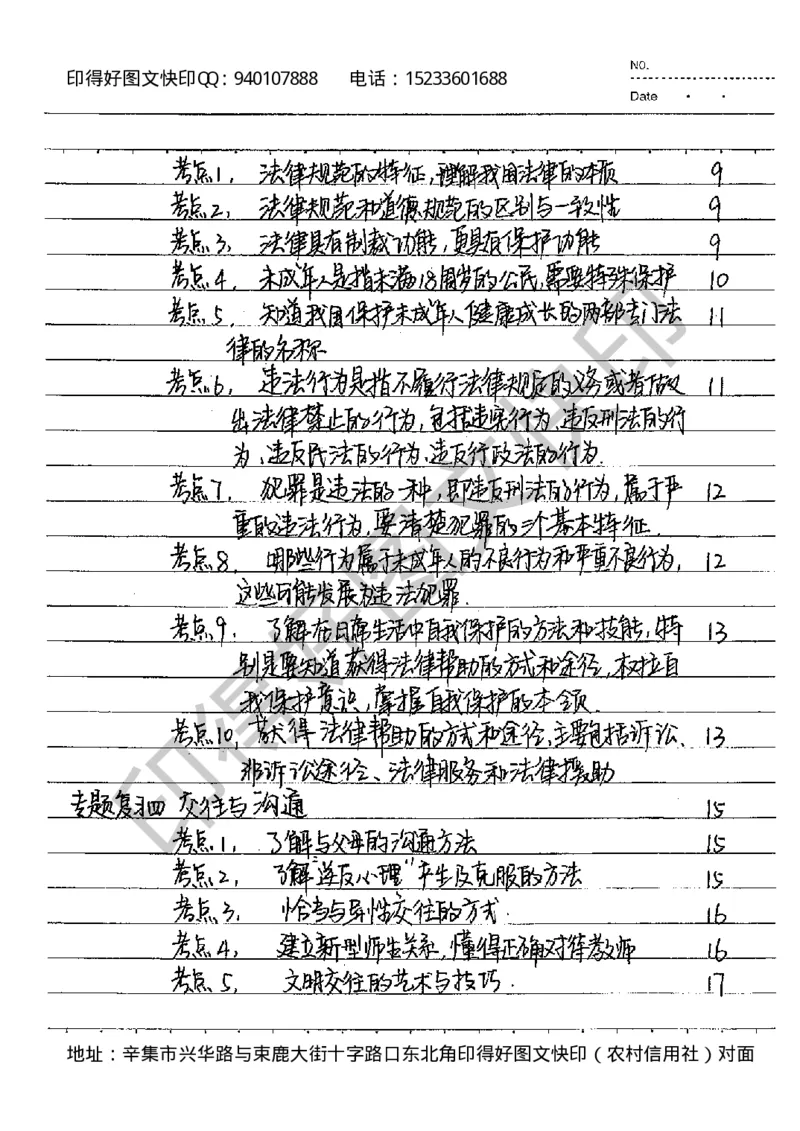 印得好图文快印QQ：940107888 电话：15233601688
No.
Date
考点1, 法律规范的特征,理解我国法律的本质 9
考点2, 法律规范和道德规范的区别与一致性 9
考点3, 法律具有制裁功能,更具有保护功能 9
考点4, 未成年人是指未满18周岁的公民,需要特殊保护 10
考点5, 知道我国保护未成年人健康成长的两部专门法 11
律的名称
考点6, 违法行为是指不履行法律规定的义务或者做 11
出法律禁止的行为,包括违宪行为、违反刑法的行
为、违反民法的行为、违反行政法的行为.
考点7, 犯罪是违法的一种,即违反刑法的行为,属于严 12
重的违法行为,要清楚犯罪的三个基本特征.
考点8, 哪些行为属于未成年人的不良行为和严重不良行为, 12
这些可能发展为违法犯罪.
考点9, 了解在日常生活中自我保护的方法和技能,特 13
别是要知道获得法律帮助的方式和途径,树立自
我保护意识,掌握自我保护的本领.
考点10, 获得法律帮助的方式和途径,主要包括诉讼、 13
非诉讼途径、法律服务和法律援助
专题复习四 交往与沟通 15
考点1, 了解与父母的沟通方法 15
考点2, 了解"逆反心理"产生及克服的方法 15
考点3, 恰当与异性交往的方式. 16
考点4, 建立新型师生关系,懂得正确对待教师 16
考点5, 文明交往的艺术与技巧. 17
印得好图文快印
地址：辛集市兴华路与束鹿大街十字路口东北角印得好图文快印（农村信用社）对面